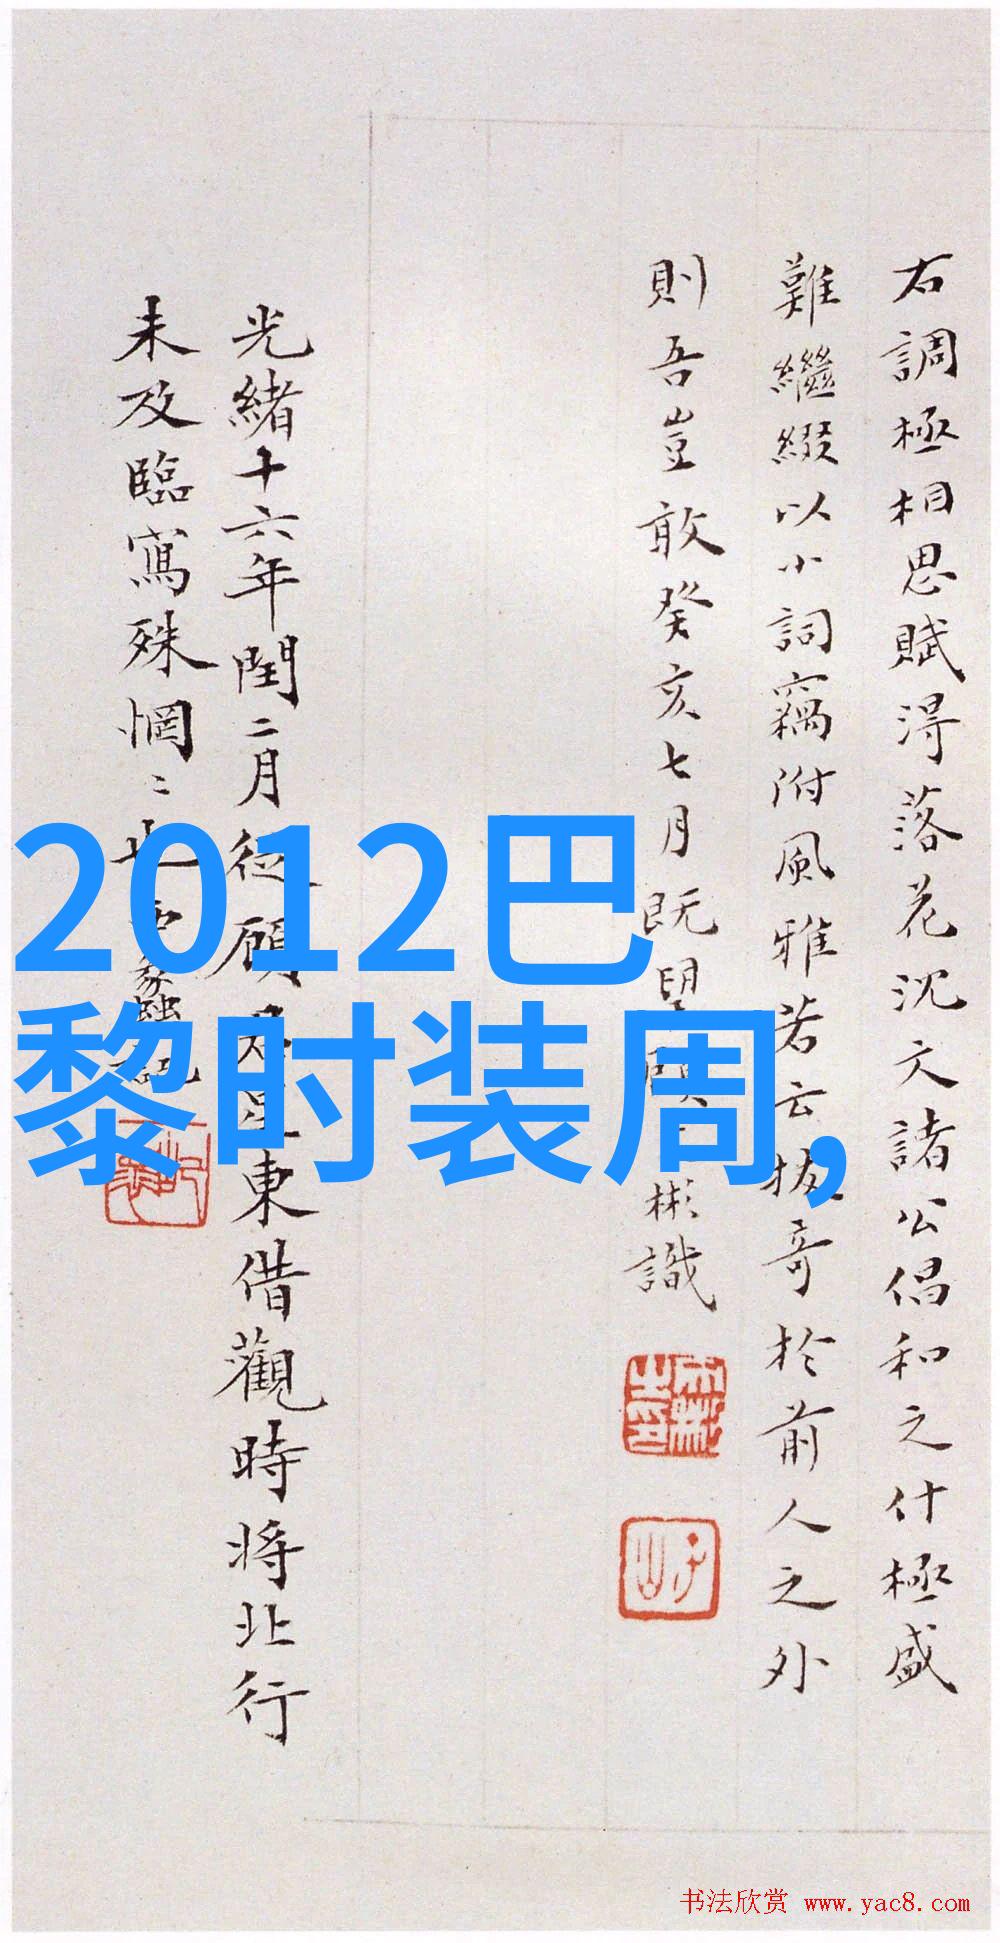 右調極相思賦得落花沈文諸公倡和之什極盛
難繼綴以小詞竊附風雅若云拔奇於前人之外
則吾豈敢癸亥七月既望彬識
光緒十六年閏二月從顧東借觀時將北行
未及臨寫殊惘〻也記
2012巴
黎时装周,
书法欣赏 www.yac8.com